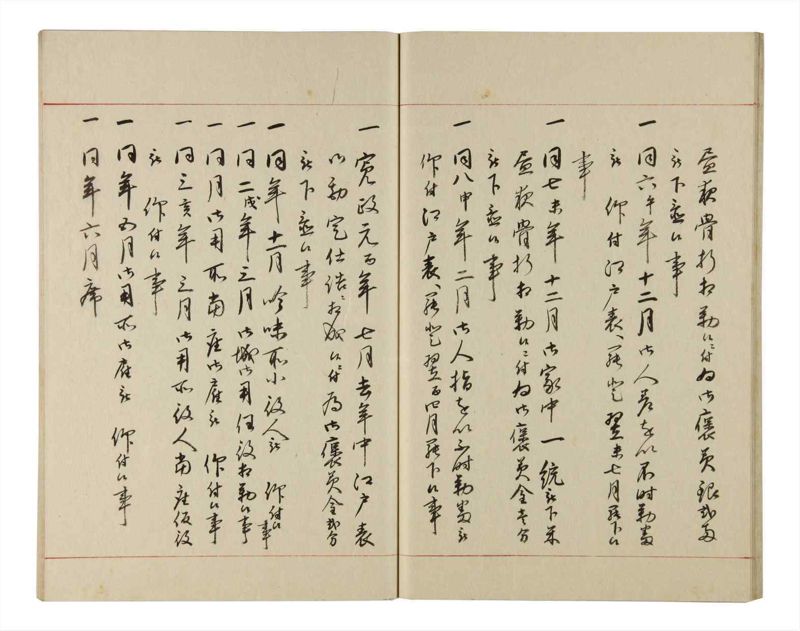 昼夜骨折相勤候ニ付為御褒美銀弐両
被下置候事
一同六午年十二月御人差を以不時勤番
被 仰付江戸表へ罷登翌未七月罷下候
事
一同七未年十二月御家中一統被下米
昼夜骨折相勤候ニ付為御褒美金壱分
被下置候事
一同八申年二月御人指を以不時勤番被
仰付江戸表へ罷登翌酉四月罷下候事
一寛政元酉年七月去年中江戸表
御勘定仕詰相成候ニ付為御褒美金弐分
被下置候事
一同年十一月吟味所小役人被 仰付候事
一同二戌年三月御城御用役相勤候事
一同月御用所当座御雇被 仰付候事
一同三亥年三月御用所役人当座仮役
被 仰付候事
一同年五月御用所御雇被 仰付候事
一同年六月席